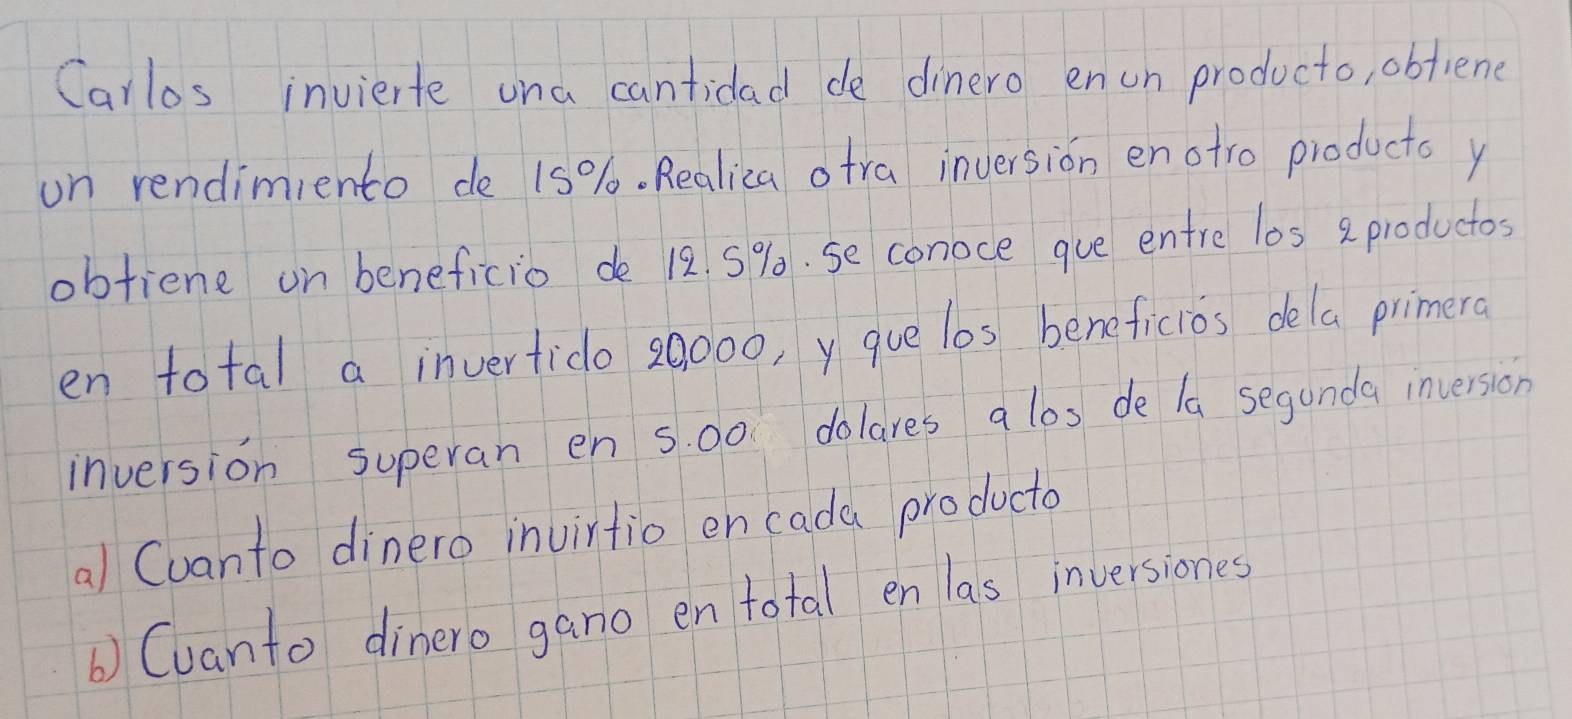 Carlos invierte una cantidad de dinero en un producto, obtiene
un rendimiento de 15%. Realiza otra inversión en otro producto y
obtiene un beneficio de 12.5%. se conoce que entre los 2 productos
en total a invertido 20,000, y que los beneficiós dela primera
inversión superan en 5.00 dolares a los de la segunda inversión
a) Cuanto dinero invirtio en cada producto
b) Cuanto dinero gano en total en las inversiones